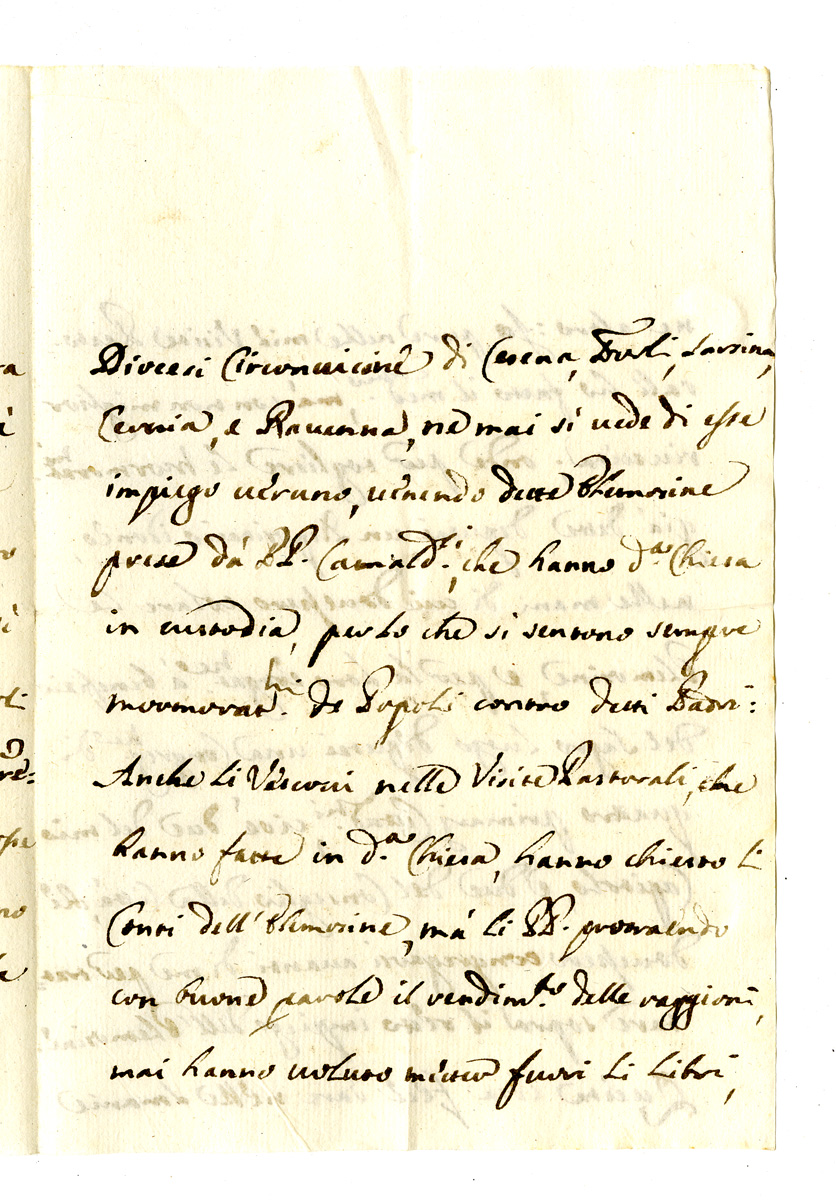 Diocesi Circonvicine di Cesena, Forlì, Sarsina,
Cervia, e Ravenna, ne mai si vede di esse
impiego veruno, venendo dette Elemosine
prese dà PP. Camald.si, che hanno d.a Chiesa
in custodia, perlo che si sentono sempre
mormorat.ni de Popoli contro detti Padri:
Anche li Vescovi nelle Visite Pastorali, che
hanno fatte in d.a Chiesa, hanno chiesto li
Conti dell'Elemosine, mà li PP. protraendo
con buone parole il rendim.to delle raggioni,
mai hanno voluto metter fuori li Libri,